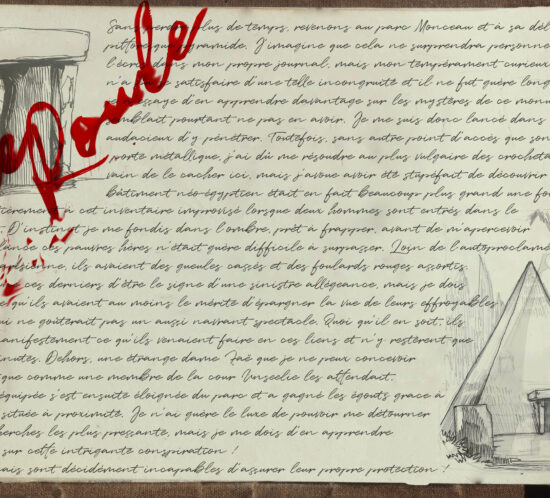 Sans perdre plus de temps, revenons au parc Monceau et à sa
pittoresque pyramide. J'imagine que cela ne surprendra personne
l'écrit dans mon propre journal, mais mon tempérament curieux
satisfaire d'une telle incongruité et il ne fut guère long
d'en apprendre davantage sur les mystères de ce
semblait pourtant ne pas en avoir. Je me suis donc lancé dans
audacieux d'y pénétrer. Toutefois, sans autre point d'accès que son
porte métallique, j'ai dû me résoudre au plus vulgaire des
vain de le cacher ici, mais j'avoue avoir été stupéfait de découvrir
bâtiment néo-égyptien était en fait beaucoup plus grand une
à cet inventaire improvisé lorsque deux hommes sont entrés dans le
D'instinct je me fondis dans l'ombre, prêt à frapper, avant de m'apercevoir
pauvres hères n'était guère difficile à surpasser. Loin de
ils avaient des gueules cassés et des foulards rouges assortis.
ces derniers d'être le signe d'une sinistre allégeance, mais je dois
qu'ils avaient au moins le mérite d'épargner la vue de leurs effroyables
ne goûterait pas un aussi navrant spectacle. Quoi qu'il en soit, ils
ce qu'ils venaient faire en ces liens et n'y restèrent que
Dehors, une étrange dame Faë que je ne peux concevoir
que comme une membre de la cour Unseelie les attendait.
équipée s'est ensuite éloignée du parc et a gagné les égouts grâce à
située à proximité. Je n'ai guère le luxe de pouvoir me détourner
les plus pressante, mais je me dois d'en apprendre
sur cette intrigante conspiration !
sont décidément incapables d'assurer leur propre protection !
Poule